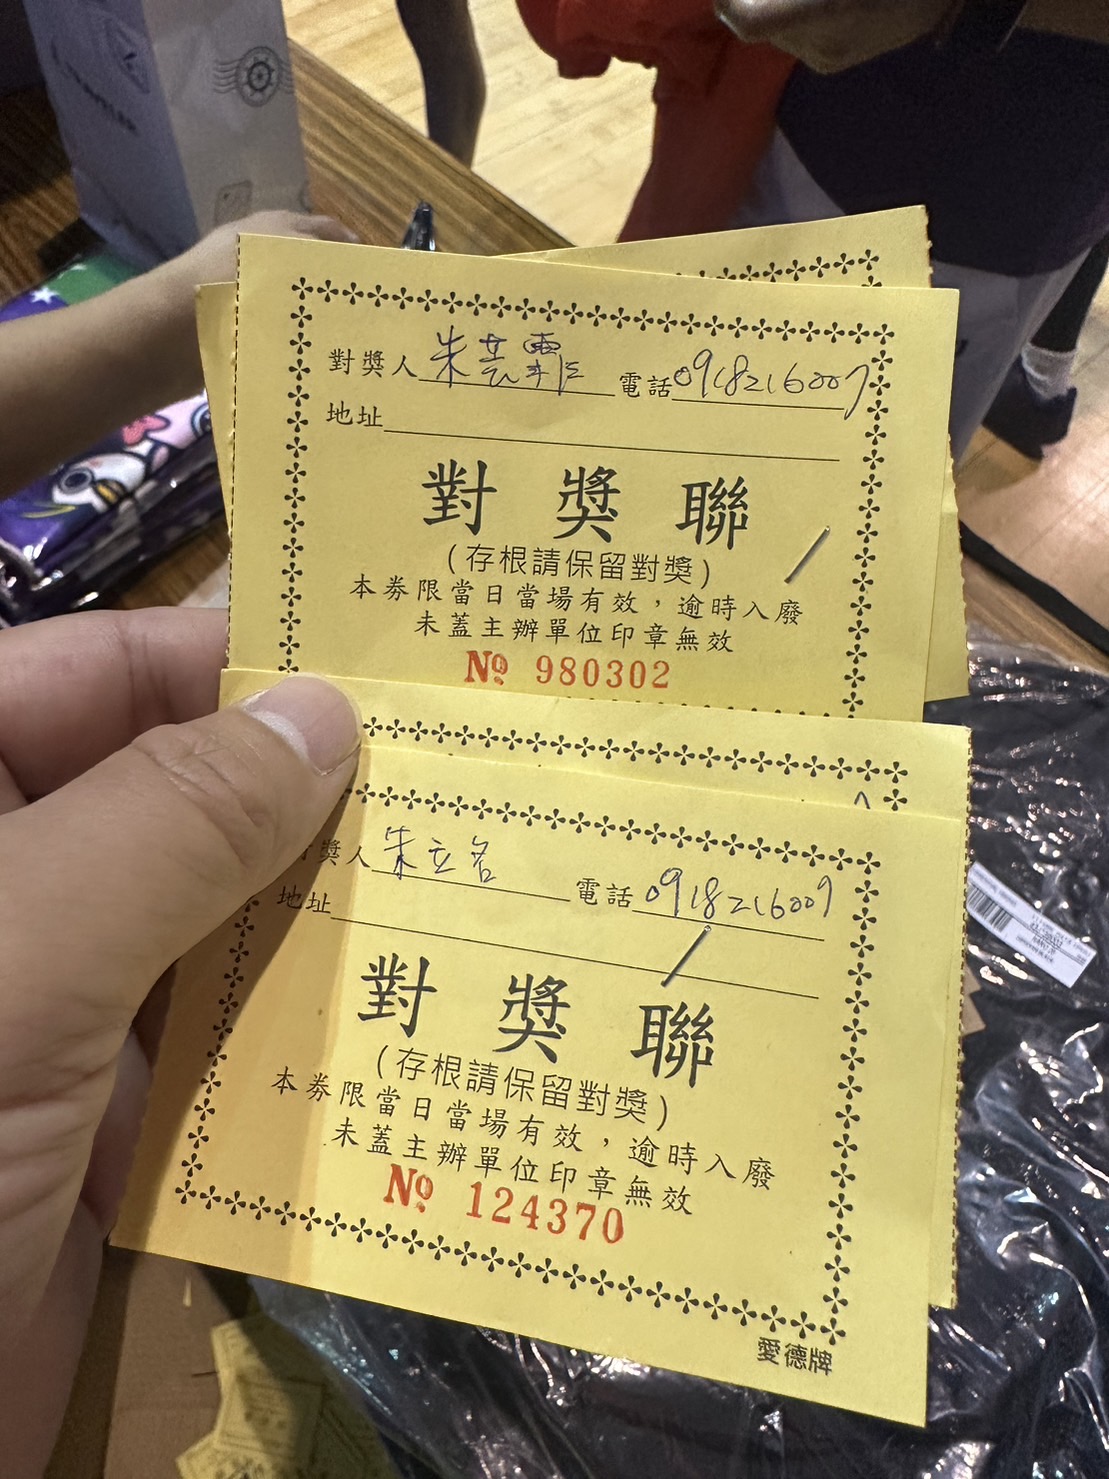 對獎人 朱芸霏 電話 0918216007
地址
對 獎 聯
(存根請保留對獎)
本券限當日當場有效，逾時入廢
未蓋主辦單位印章無效
№ 980302
獎人 朱立名 電話 0918216007
地址
對 獎 聯
(存根請保留對獎)
本券限當日當場有效，逾時入廢
未蓋主辦單位印章無效
№ 124370
愛德牌